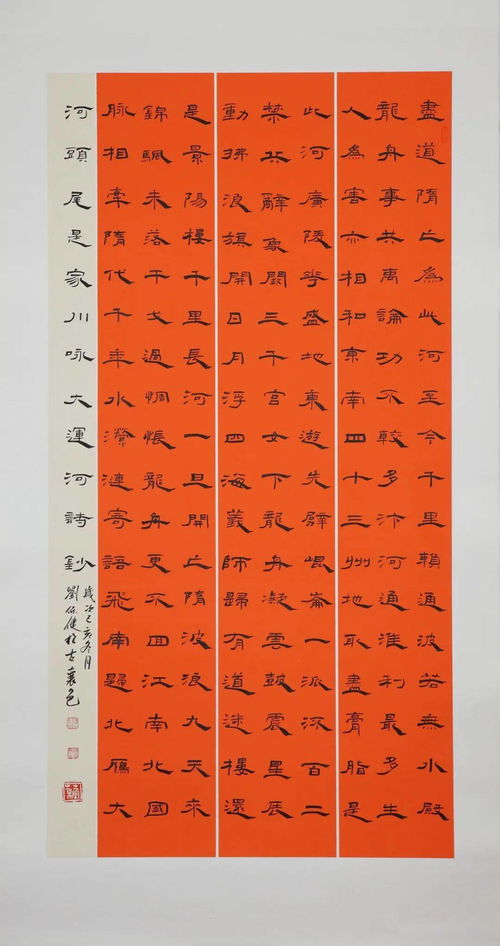 盡道隋亡為此河至今千里賴通波若無水殿
龍舟事共禹論功不較多汴河通淮利最多生
人為害亦相和東南四十三州地取盡膏脂是
此河廣陵花盛地東遊先劈崐崙一派流百二
禁兵辭象闕三千宮女下龍舟凝雲鼓震星辰
動拂浪旗開日月浮四海義師歸有道迷樓還
是景陽樓千里長河一旦開亡隋波浪九天來
錦颿未落干戈過惆悵龍舟更不回江南北國
脉相牽隋代千年水瀠漣寄語飛南歸北雁大
河頭尾是家川咏大運河詩鈔
歲次己亥冬月
劉保健於古襄邑